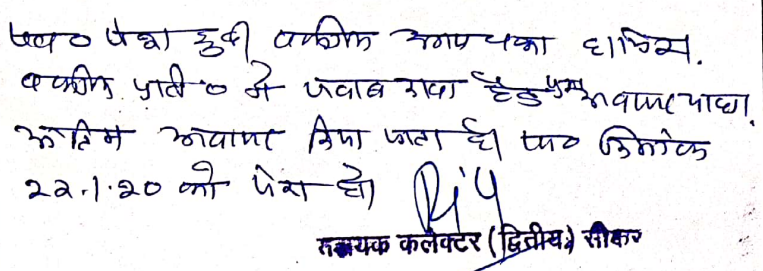 पत्रा० पेश हुई वकील उभयपक्ष हाजिर.
वकील प्रार्थी० ने जवाब हेतु अवसर चाहा.
अंतिम अवसर दिया जाता है। पत्रा० दिनांक
22.1.20 को पेश हो।
सहायक कलेक्टर (द्वितीय) सीकर